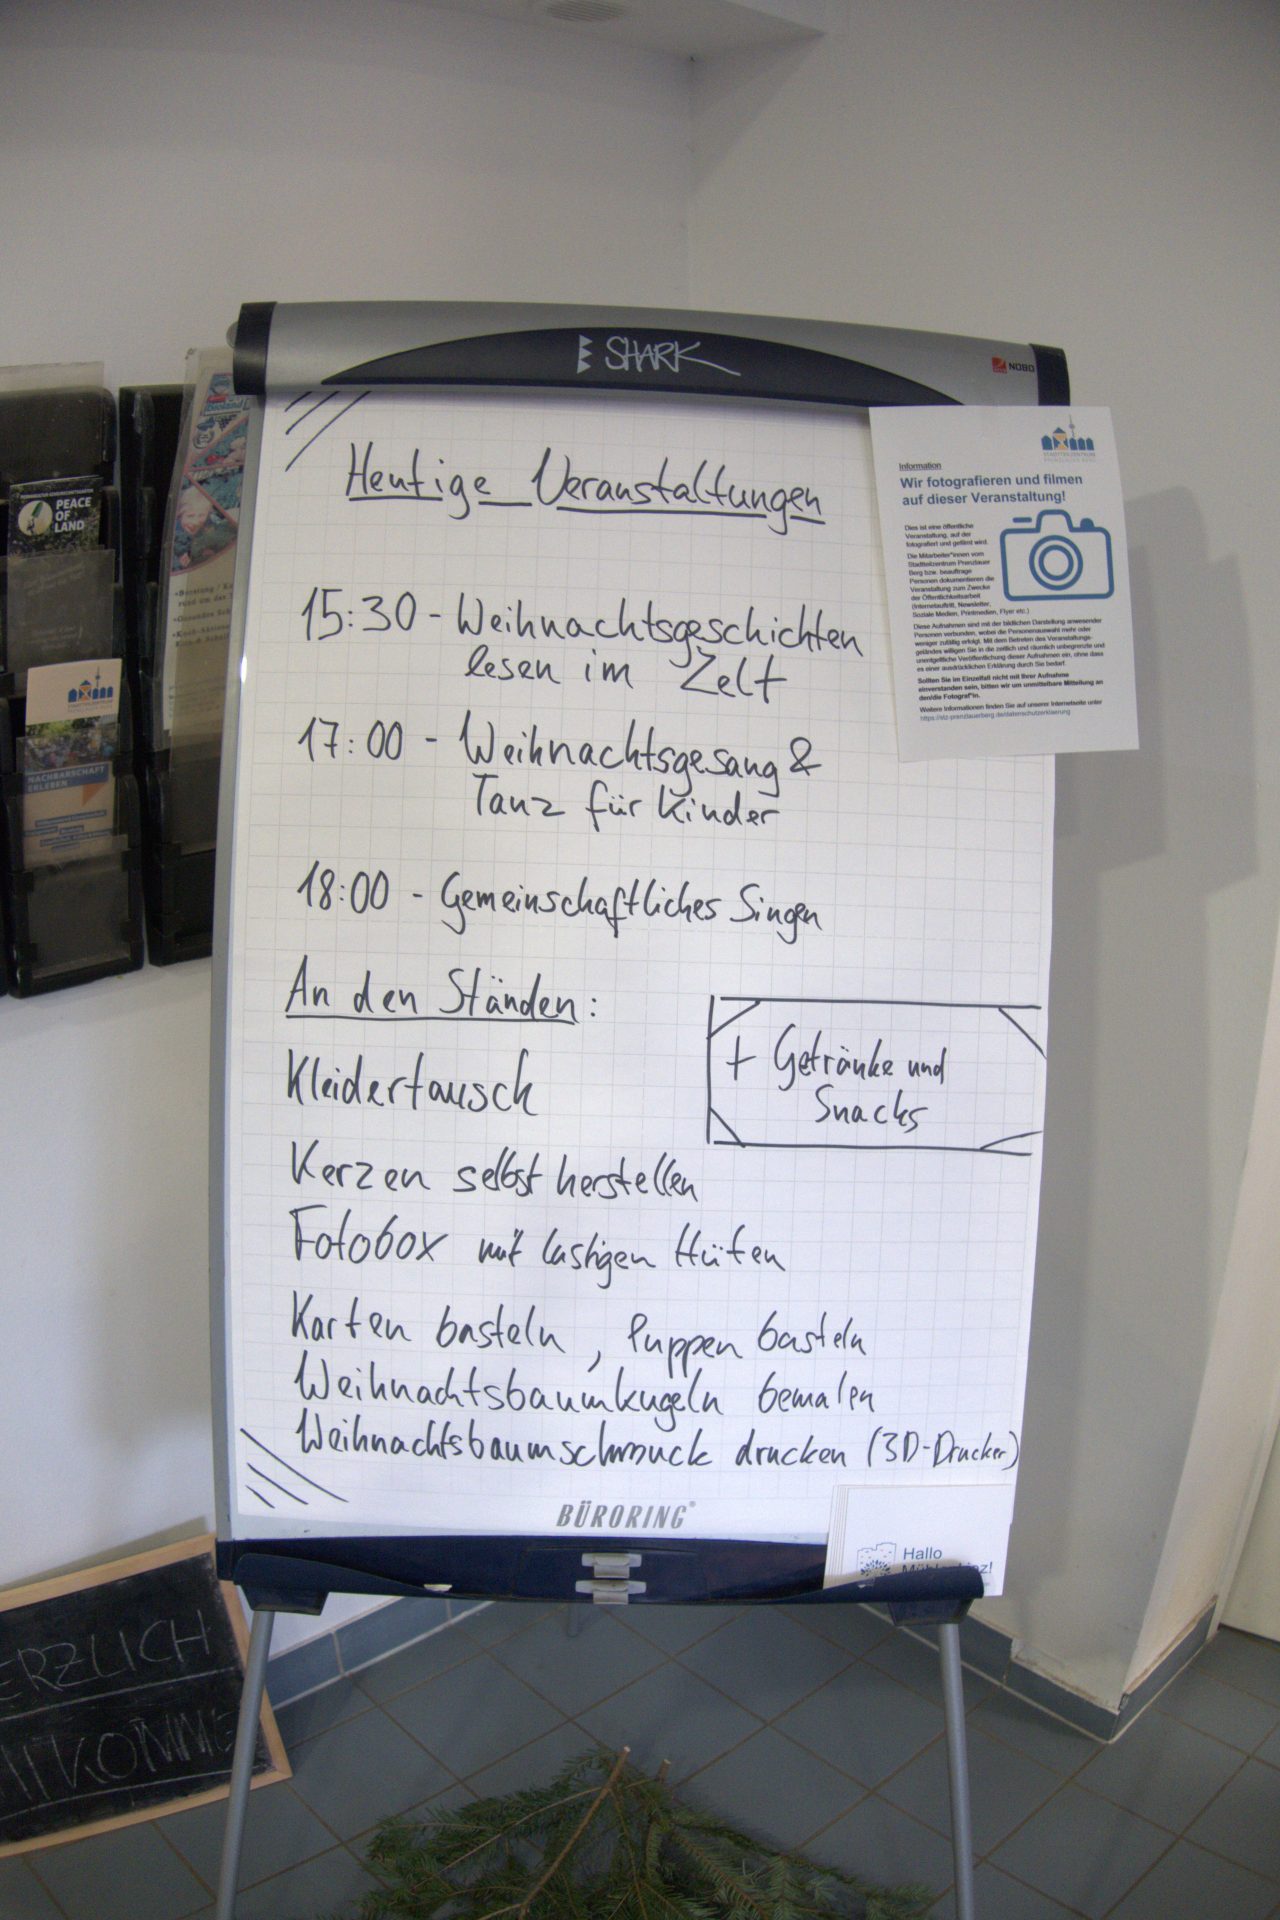 SHARK
NOBO
Heutige Veranstaltungen
15:30 - Weihnachtsgeschichten
lesen im Zelt
17:00 - Weihnachtsgesang &
Tanz für Kinder
18:00 - Gemeinschaftliches Singen
An den Ständen:
Kleidertausch
+ Getränke und
Snacks
Kerzen selbst herstellen
Fotobox mit lustigen Hüten
Karten basteln, Puppen basteln
Weihnachtsbaumkugeln bemalen
Weihnachtsbaumschmuck drucken (3D-Drucker)
BÜRORING®
Hallo
STADTTEILZENTRUM
Information
Wir fotografieren und filmen
auf dieser Veranstaltung!
Dies ist eine öffentliche
Veranstaltung, auf der
fotografiert und gefilmt wird.
Die Mitarbeiter*innen vom
Stadtteilzentrum Prenzlauer
Berg bzw. beauftrage
Personen dokumentieren die
Veranstaltung zum Zwecke
der Öffentlichkeitsarbeit
(Internetauftritt, Newsletter,
Soziale Medien, Printmedien, Flyer etc.)
Diese Aufnahmen sind mit der bildlichen Darstellung anwesender
Personen verbunden, wobei die Personenauswahl mehr oder
weniger zufällig erfolgt. Mit dem Betreten des Veranstaltungs-
geländes willigen Sie in die zeitlich und räumlich unbegrenzte und
unentgeltliche Veröffentlichung dieser Aufnahmen ein, ohne dass
es einer ausdrücklichen Erklärung durch Sie bedarf.
Sollten Sie im Einzelfall nicht mit Ihrer Aufnahme
einverstanden sein, bitten wir um unmittelbare Mitteilung an
den/die Fotograf*in.
Weitere Informationen finden Sie auf unserer Internetseite unter
https://stz-prenzlauerberg.de/datenschutzerklaerung
PEACE
OF
LAND
NACHBARSCHAFT
ERLEBEN
ERZLICH
LLKOMME